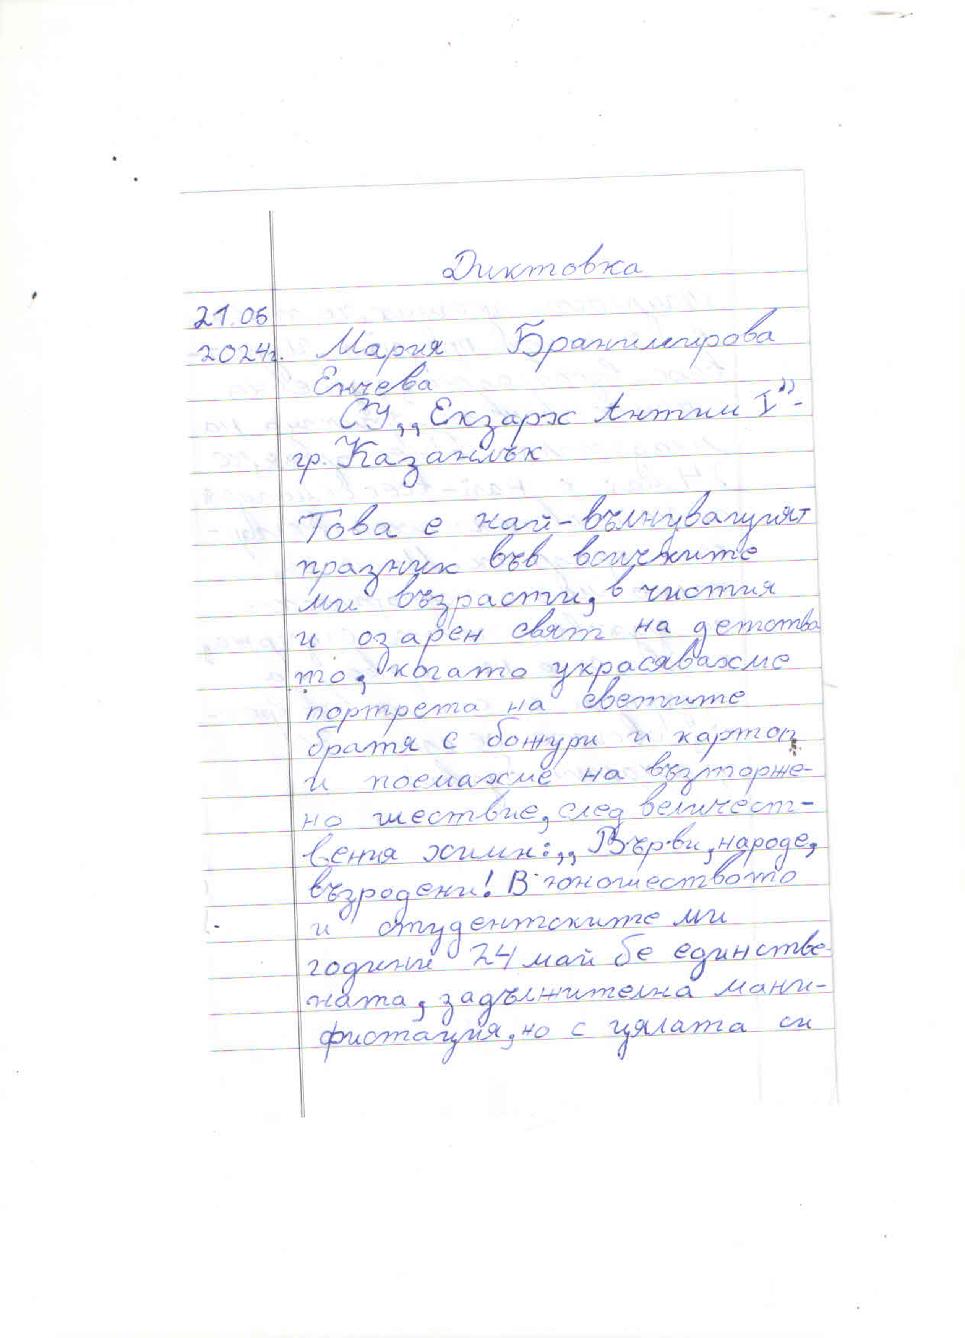 Диктовка
21.06
2024г. Мария Бранимирова
Енчева
СУ „Екзарх Антим I" -
гр. Казанлък
Това е най-вълнуващият
празник във всичките
ми възрасти, в чистия
и озарен свят на детства
то, когато украсявахме
портрета на светите
братя с божури и картоп
и поемахме на възторже-
но шествие, след величест-
вения химн: „Върви, народе,
възродени! В юношеството
и студентските ми
години 24 май бе единстве-
ната, задължителна мани-
фистация, но с цялата си